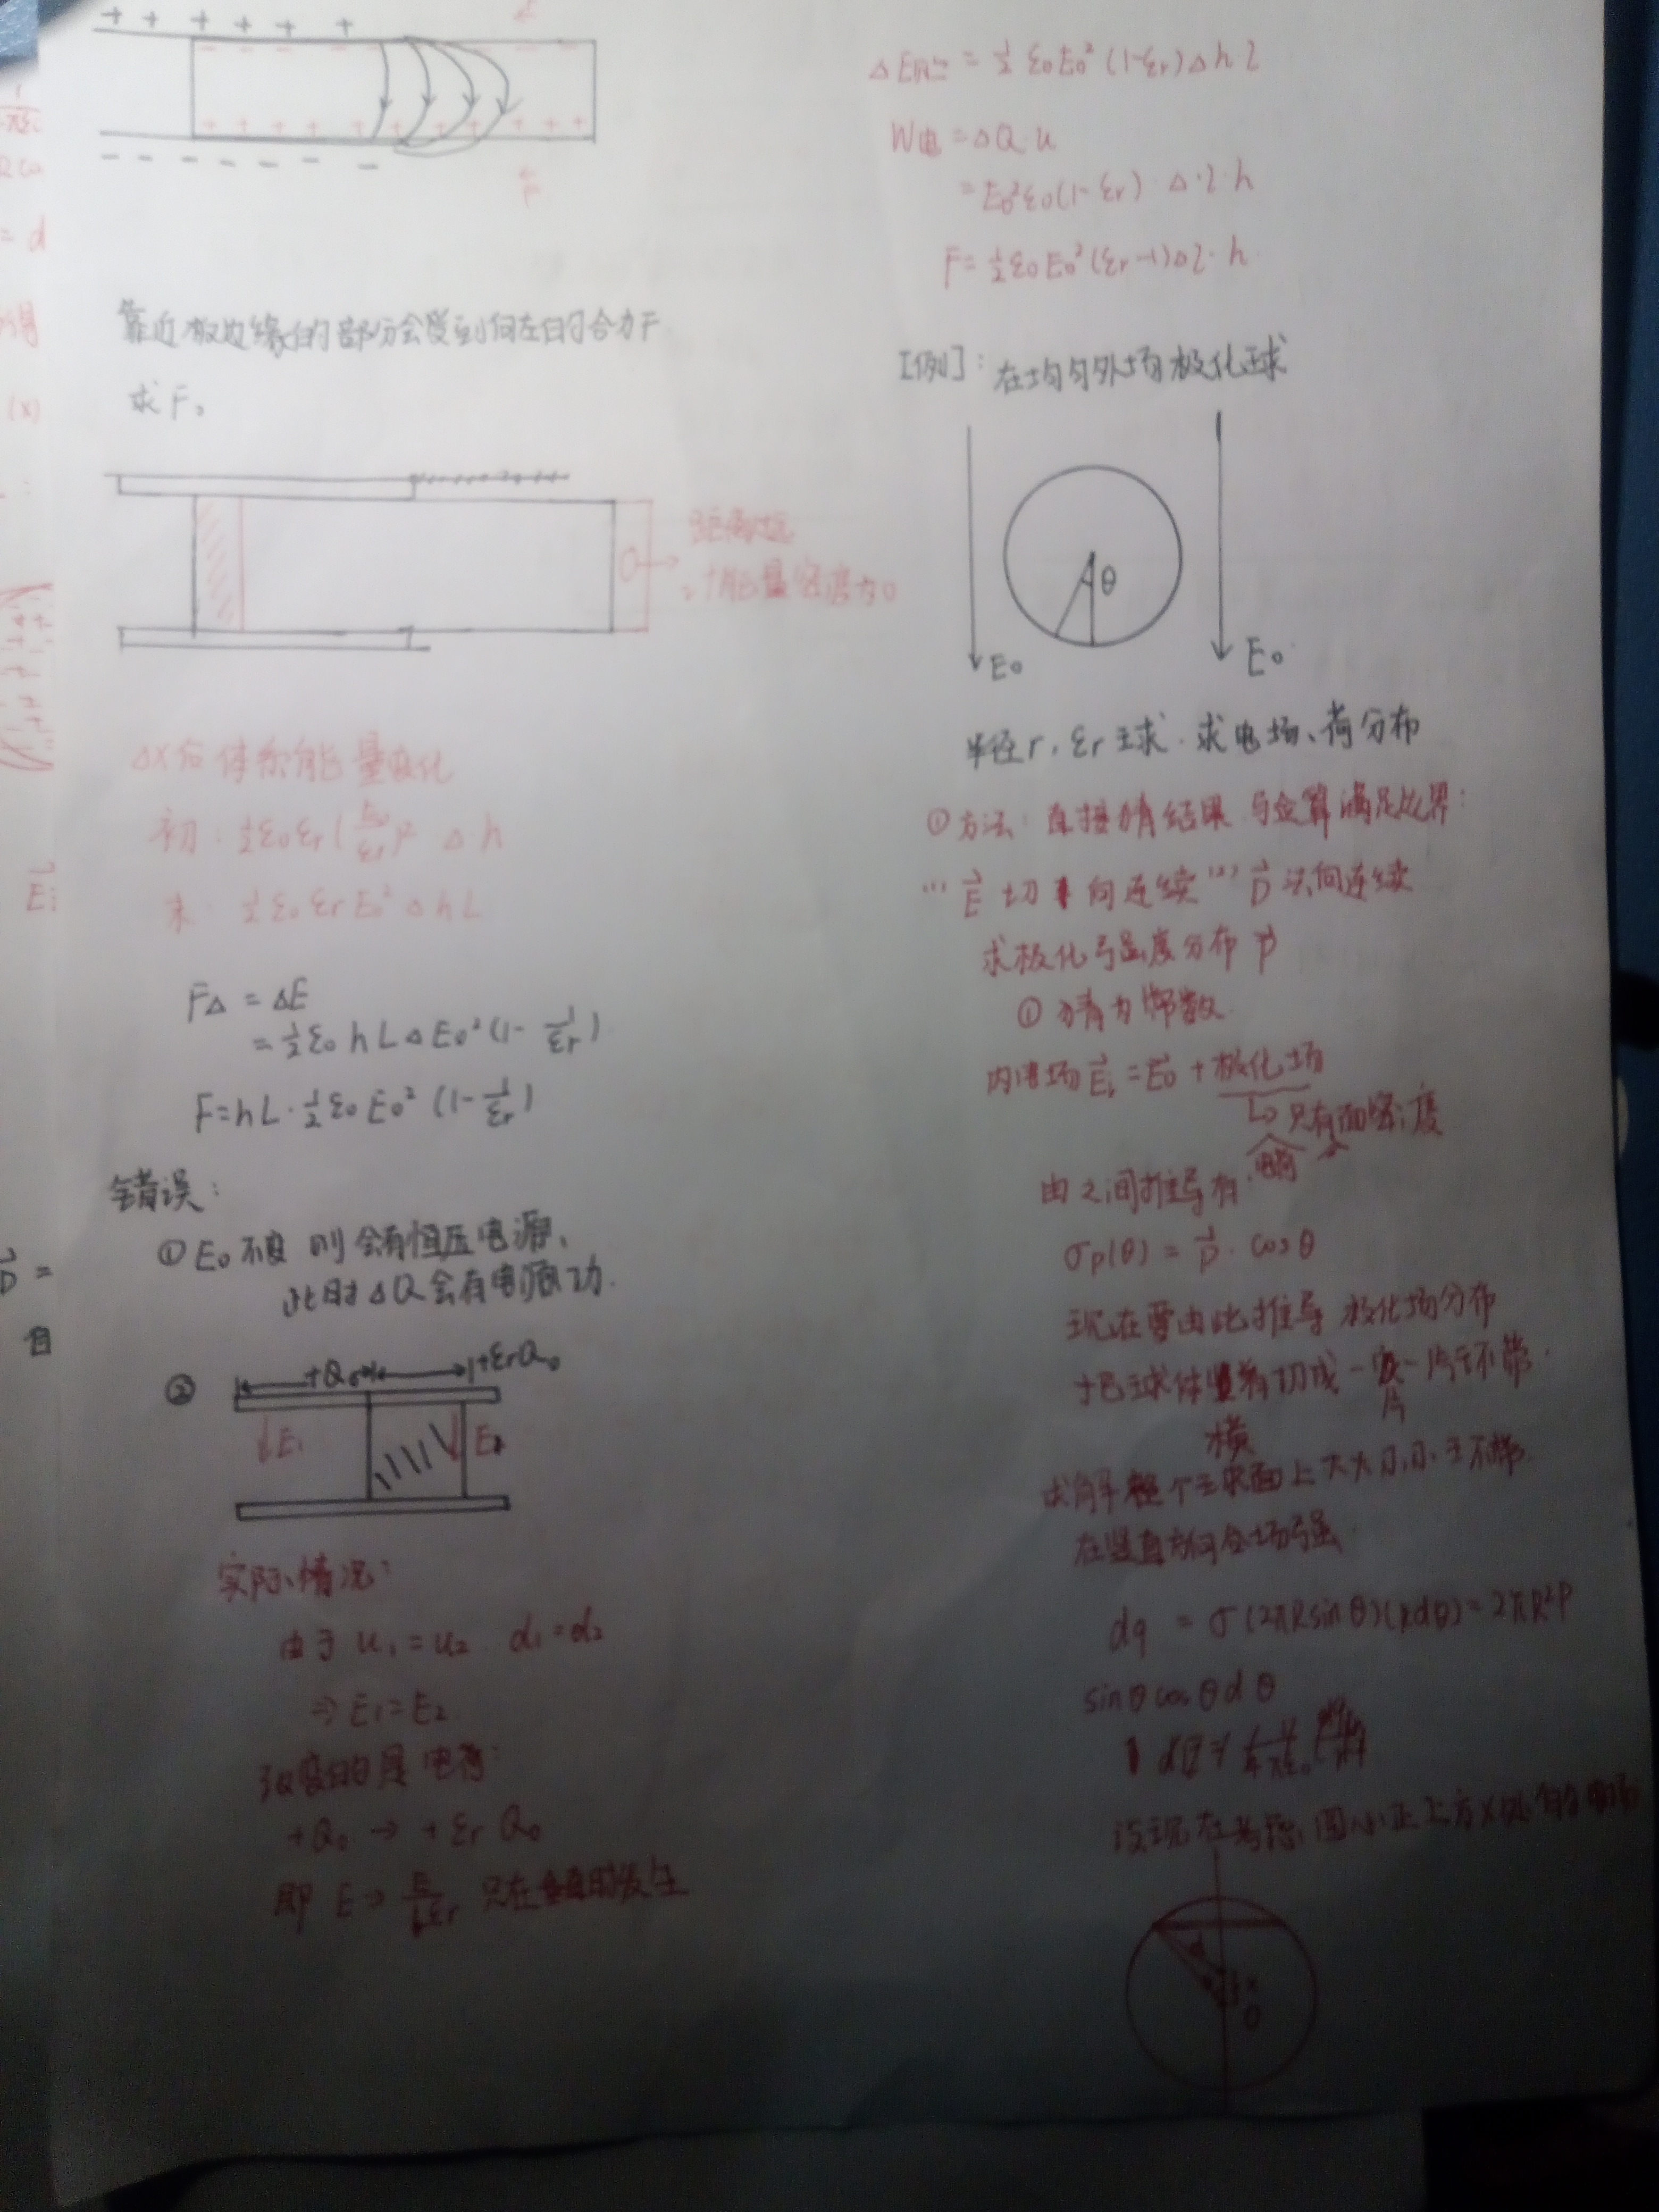 + + + + + +
- - - - - -
F
靠近极边缘的部分会受到向左的合力F
求F。
能量密度为0
ΔX后体系能量变化
初: ½ε₀εr(E₀/εr)² Δ h
末: ½ε₀εrE₀² Δ h L
FΔ = ΔE
= ½ε₀ h L Δ E₀² (1 - 1/εr)
F = h L · ½ε₀E₀² (1 - 1/εr)
错误:
① E₀不变 则会有恒压电源、
此时ΔQ会有电源功.
②
+Q₀ +εrQ₀
E₁ E₂
实际情况:
由于 u₁ = u₂ d₁ = d₂
⇒ E₁ = E₂
改变的是电荷:
+Q₀ → + εr Q₀
即 E → E/εr 只在
= ½ ε₀E₀² (1-εr)Δ h l
W电 = ΔQ·u
= E₀²ε₀(1-εr)·Δ·l·h
F = ½ε₀E₀²(εr-1)Δl·h
[例]: 在均匀外场极化球
θ
E₀ E₀
半径r, εr球. 求电场、荷分布
① 方法: 直接猜结果 验算满足边界:
(1) E⃗ 切向连续 (2) D⃗ 法向连续
求极化强度分布 P
① 猜为常数.
内部场E⃗₁ = E⃗₀ + 极化场
↳ 只有面密度
由之间推导有:
σp(θ) = P⃗ · cosθ
现在要由此推导 极化场分布
把球体切成一片片环带.
横
求解整个球面上大大小小环带
在竖直方向合场强
dq = σ(2πRsinθ)(Rdθ) = 2πR²P
sinθcosθdθ
x
O